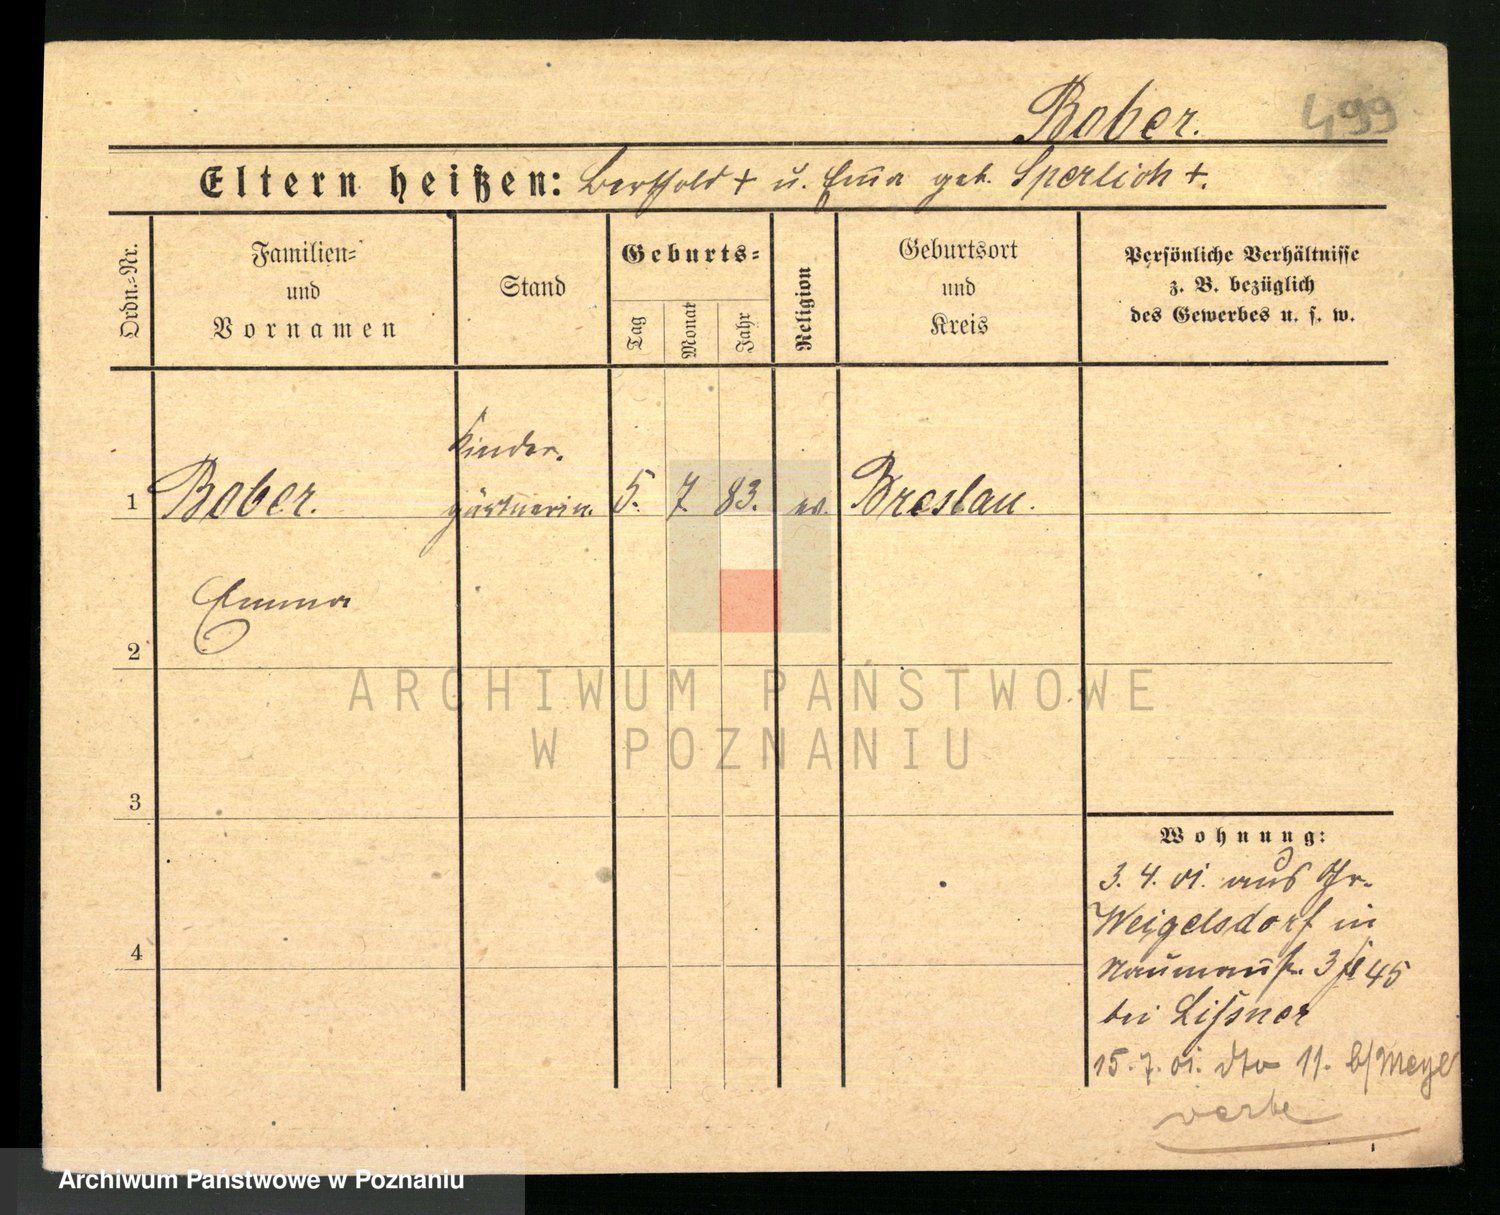 Bober.
499
Eltern heißen: Berthold + u. Em̅a geb. Sperlich +.
Ordn.-Nr.
Familien-
und
Vornamen
Stand
Geburts-
Tag
Monat
Jahr
Religion
Geburtsort
und
Kreis
Persönliche Verhältnisse
z. B. bezüglich
des Gewerbes u. s. w.
Kinder-
1 Bober. gärtnerin. 5. 7. 83. ev. Breslau.
Emma
2
ARCHIWUM PAŃSTWOWE
W POZNANIU
3
Wohnung:
3. 4. 01. aus Gr.
Weigelsdorf in
Naumannstr. 3 45
bei Lißner
4
15. 7. 01. dto 11. b/Meyer
Archiwum Państwowe w Poznaniu